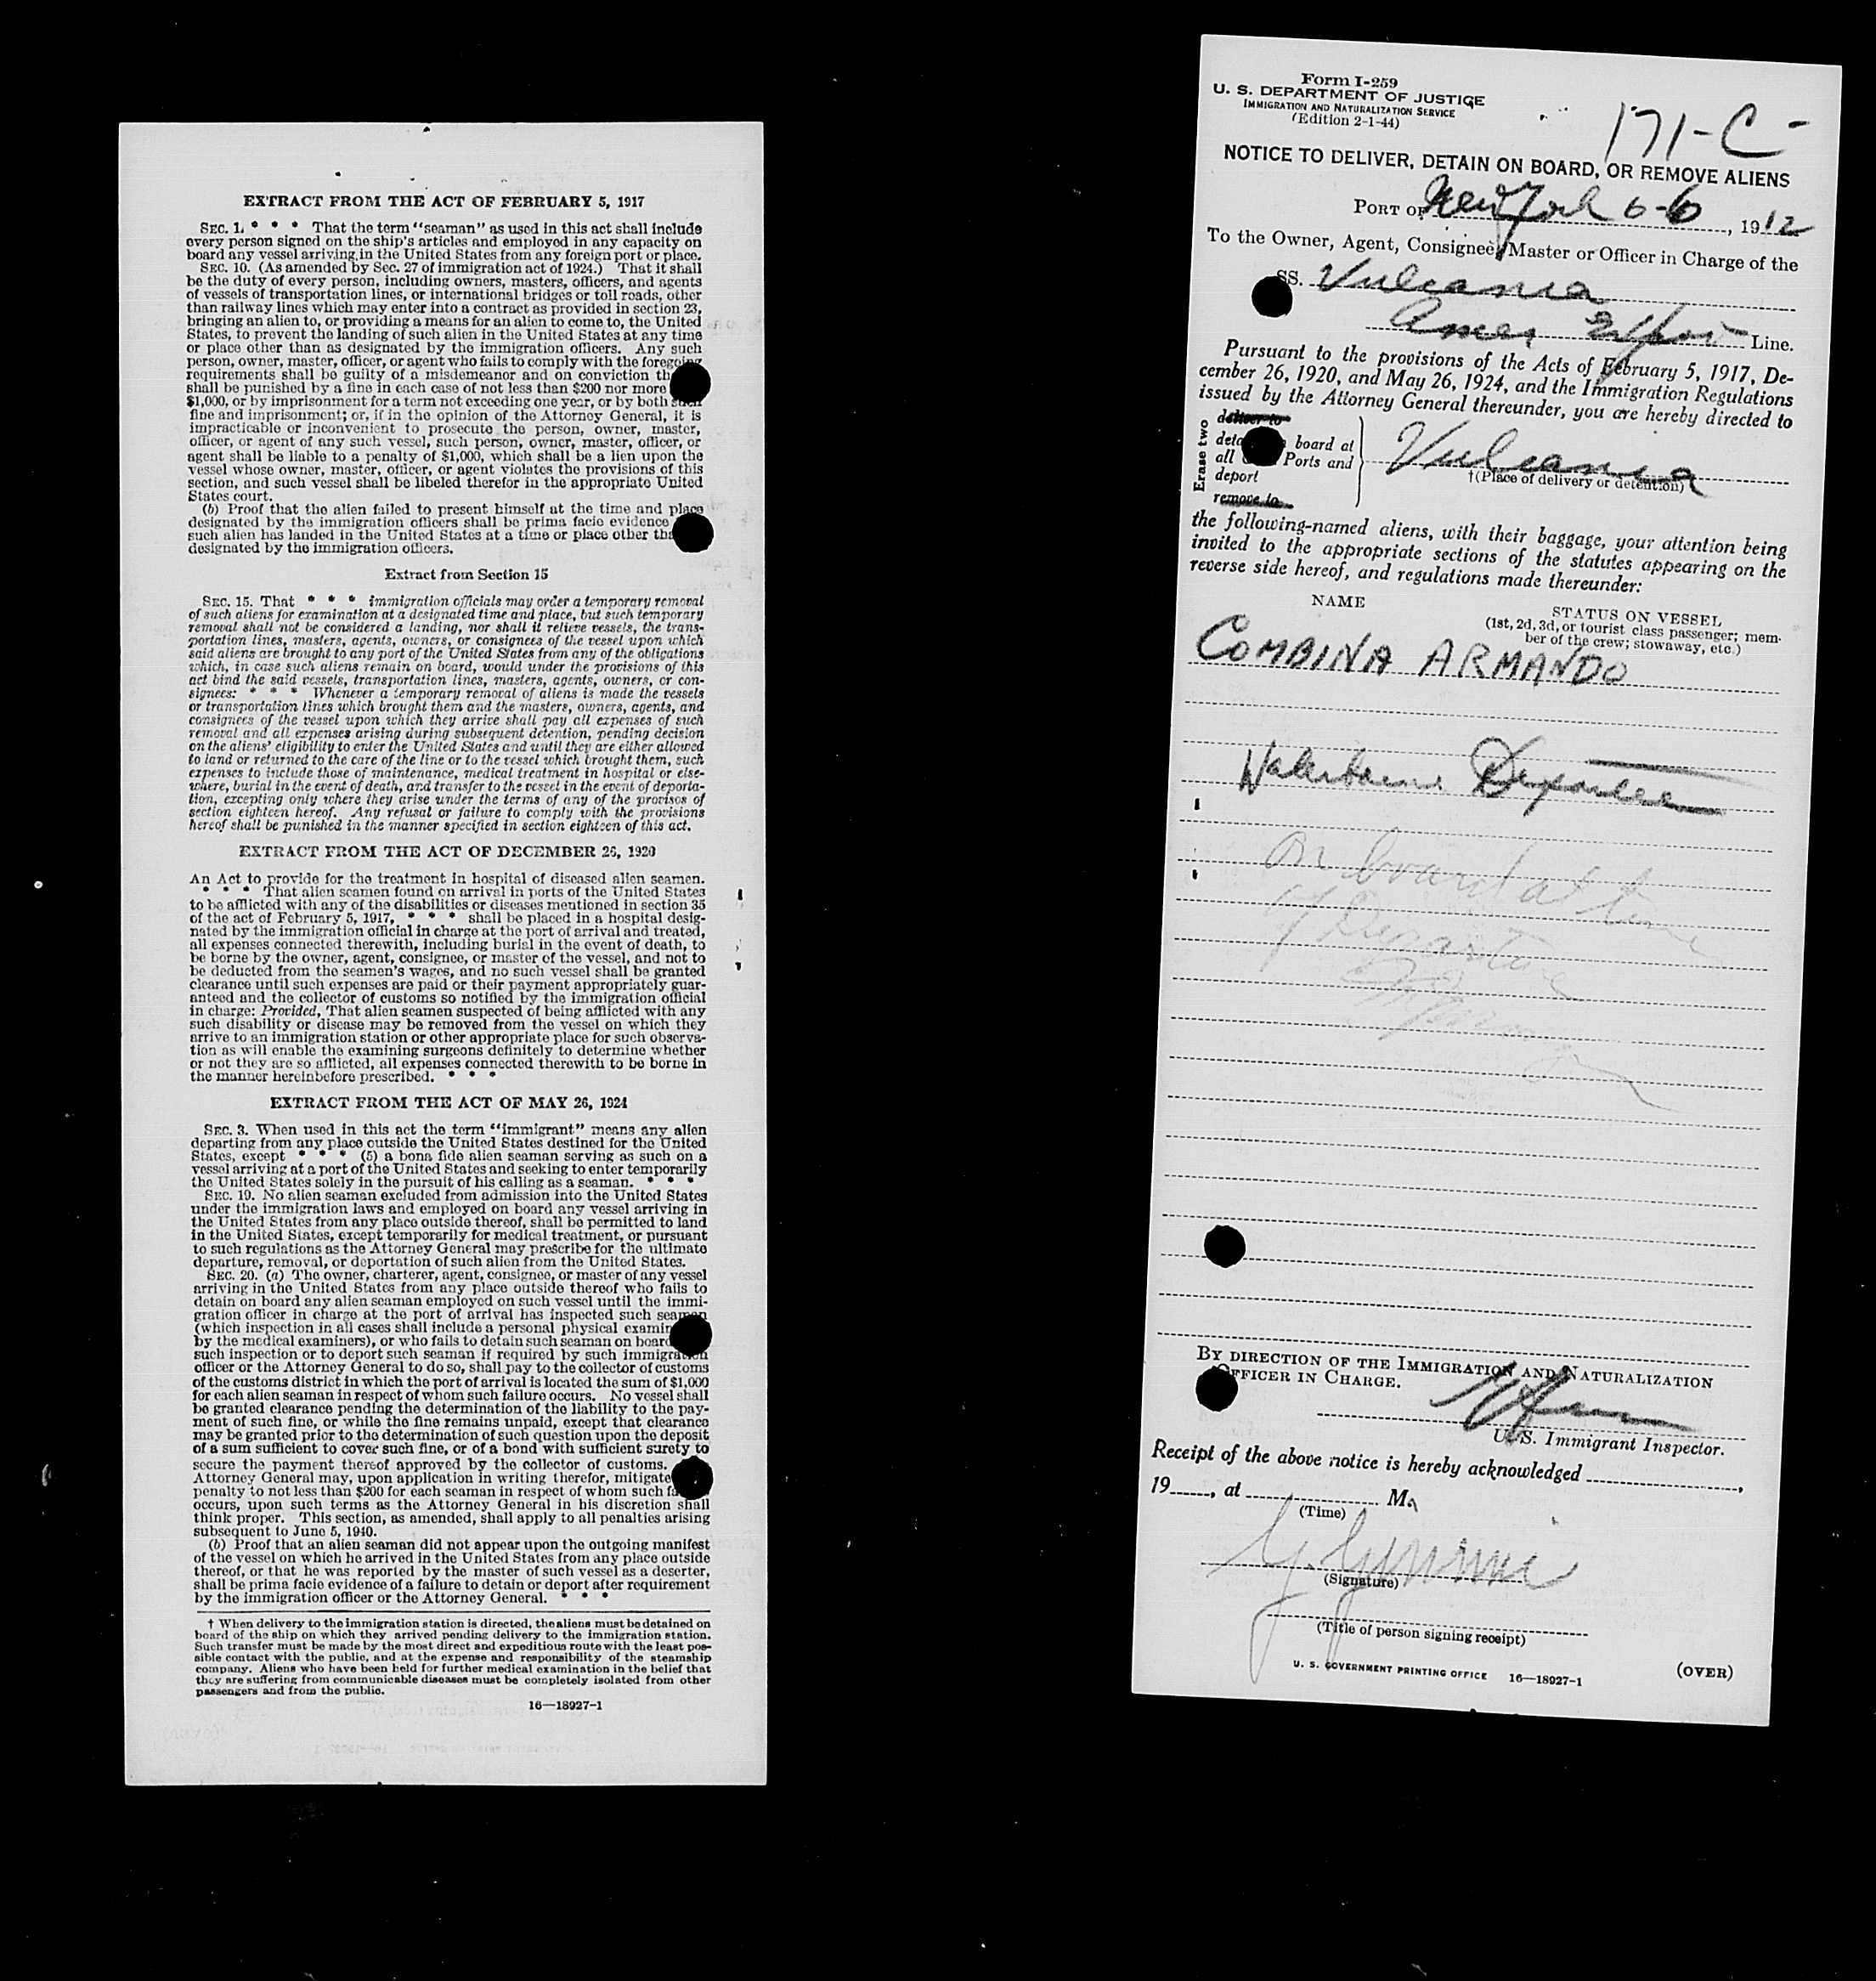 EXTRACT FROM THE ACT OF FEBRUARY 5, 1917
SEC. 1. * * * That the term "seaman" as used in this act shall include
every person signed on the ship's articles and employed in any capacity on
board any vessel arriving in the United States from any foreign port or place.
SEC. 10. (As amended by Sec. 27 of immigration act of 1924.) That it shall
be the duty of every person, including owners, masters, officers, and agents
of vessels of transportation lines, or international bridges or toll roads, other
than railway lines which may enter into a contract as provided in section 23,
bringing an alien to, or providing a means for an alien to come to, the United
States, to prevent the landing of such alien in the United States at any time
or place other than as designated by the immigration officers. Any such
person, owner, master, officer, or agent who fails to comply with the foregoing
requirements shall be guilty of a misdemeanor and on conviction th
shall be punished by a fine in each case of not less than $200 nor more
$1,000, or by imprisonment for a term not exceeding one year, or by both such
fine and imprisonment; or, if in the opinion of the Attorney General, it is
impracticable or inconvenient to prosecute the person, owner, master,
officer, or agent of any such vessel, such person, owner, master, officer, or
agent shall be liable to a penalty of $1,000, which shall be a lien upon the
vessel whose owner, master, officer, or agent violates the provisions of this
section, and such vessel shall be libeled therefor in the appropriate United
States court.
(b) Proof that the alien failed to present himself at the time and place
designated by the immigration officers shall be prima facie evidence
such alien has landed in the United States at a time or place other tha
designated by the immigration officers.
Extract from Section 15
SEC. 15. That * * * immigration officials may order a temporary removal
of such aliens for examination at a designated time and place, but such temporary
removal shall not be considered a landing, nor shall it relieve vessels, the trans-
portation lines, masters, agents, owners, or consignees of the vessel upon which
said aliens are brought to any port of the United States from any of the obligations
which, in case such aliens remain on board, would under the provisions of this
act bind the said vessels, transportation lines, masters, agents, owners, or con-
signees: * * * Whenever a temporary removal of aliens is made the vessels
or transportation lines which brought them and the masters, owners, agents, and
consignees of the vessel upon which they arrive shall pay all expenses of such
removal and all expenses arising during subsequent detention, pending decision
on the aliens' eligibility to enter the United States and until they are either allowed
to land or returned to the care of the line or to the vessel which brought them, such
expenses to include those of maintenance, medical treatment in hospital or else-
where, burial in the event of death, and transfer to the vessel in the event of deporta-
tion, excepting only where they arise under the terms of any of the provisos of
section eighteen hereof. Any refusal or failure to comply with the provisions
hereof shall be punished in the manner specified in section eighteen of this act.
EXTRACT FROM THE ACT OF DECEMBER 26, 1920
An Act to provide for the treatment in hospital of diseased alien seamen.
* * * That alien seamen found on arrival in ports of the United States
to be afflicted with any of the disabilities or diseases mentioned in section 35
of the act of February 5, 1917, * * * shall be placed in a hospital desig-
nated by the immigration official in charge at the port of arrival and treated,
all expenses connected therewith, including burial in the event of death, to
be borne by the owner, agent, consignee, or master of the vessel, and not to
be deducted from the seamen's wages, and no such vessel shall be granted
clearance until such expenses are paid or their payment appropriately guar-
anteed and the collector of customs so notified by the immigration official
in charge: Provided, That alien seamen suspected of being afflicted with any
such disability or disease may be removed from the vessel on which they
arrive to an immigration station or other appropriate place for such observa-
tion as will enable the examining surgeons definitely to determine whether
or not they are so afflicted, all expenses connected therewith to be borne in
the manner hereinbefore prescribed. * * *
EXTRACT FROM THE ACT OF MAY 26, 1924
SEC. 3. When used in this act the term "immigrant" means any alien
departing from any place outside the United States destined for the United
States, except * * * (5) a bona fide alien seaman serving as such on a
vessel arriving at a port of the United States and seeking to enter temporarily
the United States solely in the pursuit of his calling as a seaman. * * *
SEC. 19. No alien seaman excluded from admission into the United States
under the immigration laws and employed on board any vessel arriving in
the United States from any place outside thereof, shall be permitted to land
in the United States, except temporarily for medical treatment, or pursuant
to such regulations as the Attorney General may prescribe for the ultimate
departure, removal, or deportation of such alien from the United States.
SEC. 20. (a) The owner, charterer, agent, consignee, or master of any vessel
arriving in the United States from any place outside thereof who fails to
detain on board any alien seaman employed on such vessel until the immi-
gration officer in charge at the port of arrival has inspected such seaman
(which inspection in all cases shall include a personal physical examin
by the medical examiners), or who fails to detain such seaman on board
such inspection or to deport such seaman if required by such immigration
officer or the Attorney General to do so, shall pay to the collector of customs
of the customs district in which the port of arrival is located the sum of $1,000
for each alien seaman in respect of whom such failure occurs. No vessel shall
be granted clearance pending the determination of the liability to the pay-
ment of such fine, or while the fine remains unpaid, except that clearance
may be granted prior to the determination of such question upon the deposit
of a sum sufficient to cover such fine, or of a bond with sufficient surety to
secure the payment thereof approved by the collector of customs.
Attorney General may, upon application in writing therefor, mitigate
penalty to not less than $200 for each seaman in respect of whom such fa
occurs, upon such terms as the Attorney General in his discretion shall
think proper. This section, as amended, shall apply to all penalties arising
subsequent to June 5, 1940.
(b) Proof that an alien seaman did not appear upon the outgoing manifest
of the vessel on which he arrived in the United States from any place outside
thereof, or that he was reported by the master of such vessel as a deserter,
shall be prima facie evidence of a failure to detain or deport after requirement
by the immigration officer or the Attorney General. * * *
† When delivery to the immigration station is directed, the aliens must be detained on
board of the ship on which they arrived pending delivery to the immigration station.
Such transfer must be made by the most direct and expeditious route with the least pos-
sible contact with the public, and at the expense and responsibility of the steamship
company. Aliens who have been held for further medical examination in the belief that
they are suffering from communicable diseases must be completely isolated from other
passengers and from the public.
16—18927-1
Form I-259
U. S. DEPARTMENT OF JUSTICE
IMMIGRATION AND NATURALIZATION SERVICE
(Edition 2-1-44)
171-C-
NOTICE TO DELIVER, DETAIN ON BOARD, OR REMOVE ALIENS
PORT OF New York 6-6, 1912
To the Owner, Agent, Consignee, Master or Officer in Charge of the
SS. Vulcania
Amer Export Line.
Pursuant to the provisions of the Acts of February 5, 1917, De-
cember 26, 1920, and May 26, 1924, and the Immigration Regulations
issued by the Attorney General thereunder, you are hereby directed to
Erase two
deliver to
deta board at
all Ports and
deport
remove to
Vulcania
†(Place of delivery or detention)
the following-named aliens, with their baggage, your attention being
invited to the appropriate sections of the statutes appearing on the
reverse side hereof, and regulations made thereunder:
NAME
STATUS ON VESSEL
(1st, 2d, 3d, or tourist class passenger; mem-
ber of the crew; stowaway, etc.)
COMBINA ARMANDO
Deportee
On board at time
of Departure
BY DIRECTION OF THE IMMIGRATION AND NATURALIZATION
OFFICER IN CHARGE.
U. S. Immigrant Inspector.
Receipt of the above notice is hereby acknowledged
19 , at M.
(Time)
(Signature)
(Title of person signing receipt)
U. S. GOVERNMENT PRINTING OFFICE 16—18927-1
(OVER)